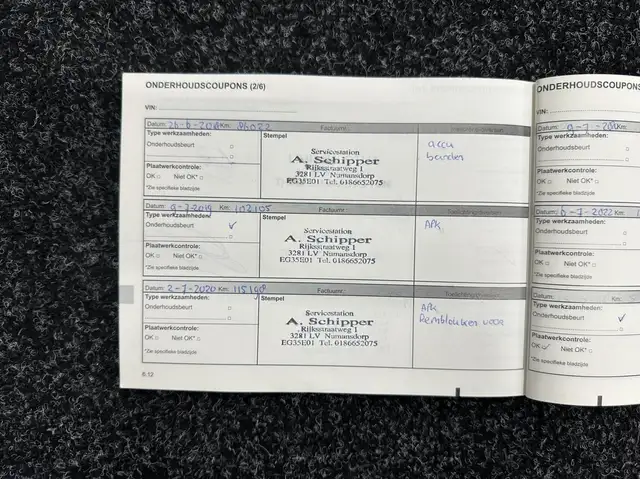 ONDERHOUDSCOUPONS (2/6)
VIN:
Datum: Km: Factuurnr.:
Type werkzaamheden:
Onderhoudsbeurt
Stempel
Servicestation
A. Schipper
Rijksstraatweg 1
3281 LV Numansdorp
EG35E01 Tel. 0186652075
accu
banden
Plaatwerkcontrole:
OK Niet OK*
*Zie specifieke bladzijde
Datum: 9-7-2019 Km: 102105 Factuurnr.:
Type werkzaamheden:
Onderhoudsbeurt ✓
Stempel
Servicestation
A. Schipper
Rijksstraatweg 1
3281 LV Numansdorp
EG35E01 Tel. 0186652075
APK
Plaatwerkcontrole:
OK Niet OK*
*Zie specifieke bladzijde
Datum: 2-7-2020 Km: Factuurnr.:
Type werkzaamheden:
Onderhoudsbeurt
Stempel
Servicestation
A. Schipper
Rijksstraatweg 1
3281 LV Numansdorp
EG35E01 Tel. 0186652075
APK
Remblokken voor
Plaatwerkcontrole:
OK Niet OK*
*Zie specifieke bladzijde
6.12
ONDERHOUDSCOUPONS
VIN:
Datum:
Type werkzaamheden:
Onderhoudsbeurt
Plaatwerkcontrole:
OK Niet OK*
*Zie specifieke bladzijde
Datum: 6-7-2022 Km:
Type werkzaamheden:
Onderhoudsbeurt
Plaatwerkcontrole:
OK Niet OK*
*Zie specifieke bladzijde
Datum:
Type werkzaamheden:
Onderhoudsbeurt ✓
Plaatwerkcontrole:
OK Niet OK*
*Zie specifieke bladzijde